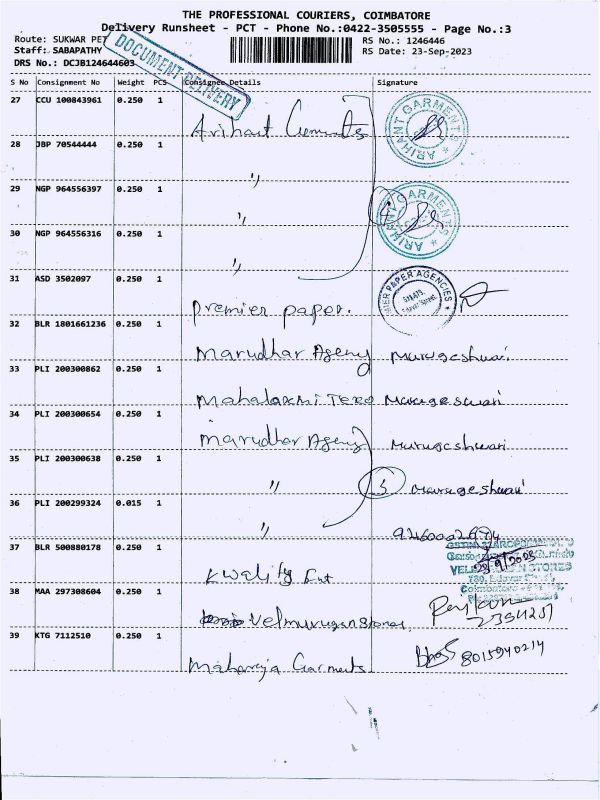 THE PROFESSIONAL COURIERS, COIMBATORE
Delivery Runsheet - PCT - Phone No.:0422-3505555 - Page No.:3
Route: SUKWAR PET
RS No.: 1246446
Staff: SABAPATHY
RS Date: 23-Sep-2023
DRS No.: DCJB124644603
DOCUMENT DELIVERY
S No Consignment No Weight PCS Consignee Details Signature
27 CCU 100843961 0.250 1 Arihant Garments
ARIHANT GARMENTS
28 JBP 70544444 0.250 1 "
29 NGP 964556397 0.250 1 "
4
ARIHANT GARMENTS
30 NGP 964556316 0.250 1 "
31 ASD 3502097 0.250 1 Premier paper.
MIER PAPER AGENCIES
32 BLR 1801661236 0.250 1 Marudhar Agency Murugeshwari
33 PLI 200300862 0.250 1 Mahalaxmi Murugeswari
34 PLI 200300654 0.250 1 Marudhar Agency Murugeshwari
35 PLI 200300638 0.250 1 " 5 Murugeshwari
36 PLI 200299324 0.015 1 "
37 BLR 500880178 0.250 1 Kwality Ent
STORES
38 MAA 297308604 0.250 1 Velmurugan Stores
39 KTG 7112510 0.250 1 Maharaja Garments 8015940214